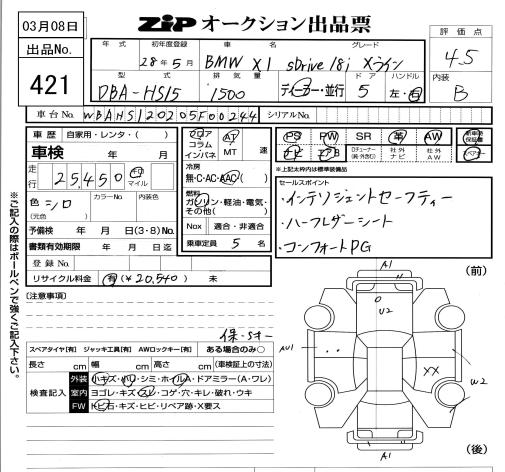 03月08日
ZIP オークション出品票
出品No.
421
年 式 初年度登録 車 名 グレード
28年5月 BMW X1 sDrive18i Xライン
型 式 排 気 量 ドア ハンドル
DBA-HS15 1500 ディーラー・並行 5 左・右
評 価 点
4.5
内装
B
車台No. WBAHS120205F00244 シリアルNo.
車 歴 自家用・レンタ・( )
車検 年 月
走行 25,450 km マイル
色 シロ (元色) カラーNo. 内装色
予備検 年 月 日(3・8)No.
書類有効期限 年 月 日迄
登 録 No.
リサイクル料金 有(¥20,540) 未
フロア コラム インパネ AT MT 速
冷房 無・C・AC・AAC( )
燃料 ガソリン・軽油・電気・その他( )
Nox 適合・非適合
乗車定員 5 名
PS PW SR 革 AW 新車時保証書
ナビ Dチューナー(純・社外) 社外ナビ 社外AW
※上記太枠内は標準装備品
セールスポイント
・インテリジェントセーフティー
・ハーフレザーシート
・コンフォートPG
【注意事項】
保・Sキー
スペアタイヤ[有] ジャッキ工具[有] AWロックキー[有] ある場合のみ○
長さ cm 幅 cm 高さ cm (車検証上の寸法)
検査記入
外装 小キズ・小凹・シミ・ホイルA・ドアミラー(A・ワレ)
室内 ヨゴレ・キズ・スレ・コゲ・穴・キレ・破れ・ウキ
FW トビ石・キズ・ヒビ・リペア跡・X要ス
※ご記入の際はボールペンで強くご記入下さい。
(前)
A1
U2
AU1
XX
W2
A1
(後)